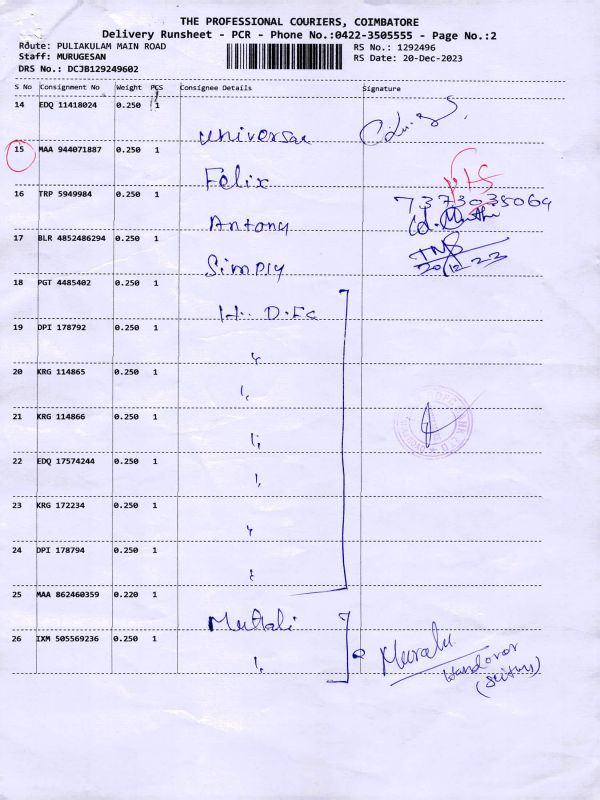 THE PROFESSIONAL COURIERS, COIMBATORE
Delivery Runsheet - PCR - Phone No.:0422-3505555 - Page No.:2
Route: PULIAKULAM MAIN ROAD RS No.: 1292496
Staff: MURUGESAN RS Date: 20-Dec-2023
DRS No.: DCJB129249602
S No Consignment No Weight PCS Consignee Details Signature
14 EDQ 11418024 0.250 1
Universal
15 MAA 944071887 0.250 1
Felix
16 TRP 5949984 0.250 1 7373035069
Antony
17 BLR 4852486294 0.250 1
Simply 20/12/23
18 PGT 4485402 0.250 1
H.D.Fc
19 DPI 178792 0.250 1
"
20 KRG 114865 0.250 1
"
21 KRG 114866 0.250 1
"
22 EDQ 17574244 0.250 1
"
23 KRG 172234 0.250 1
"
24 DPI 178794 0.250 1
"
25 MAA 862460359 0.220 1
26 IXM 505569236 0.250 1
"